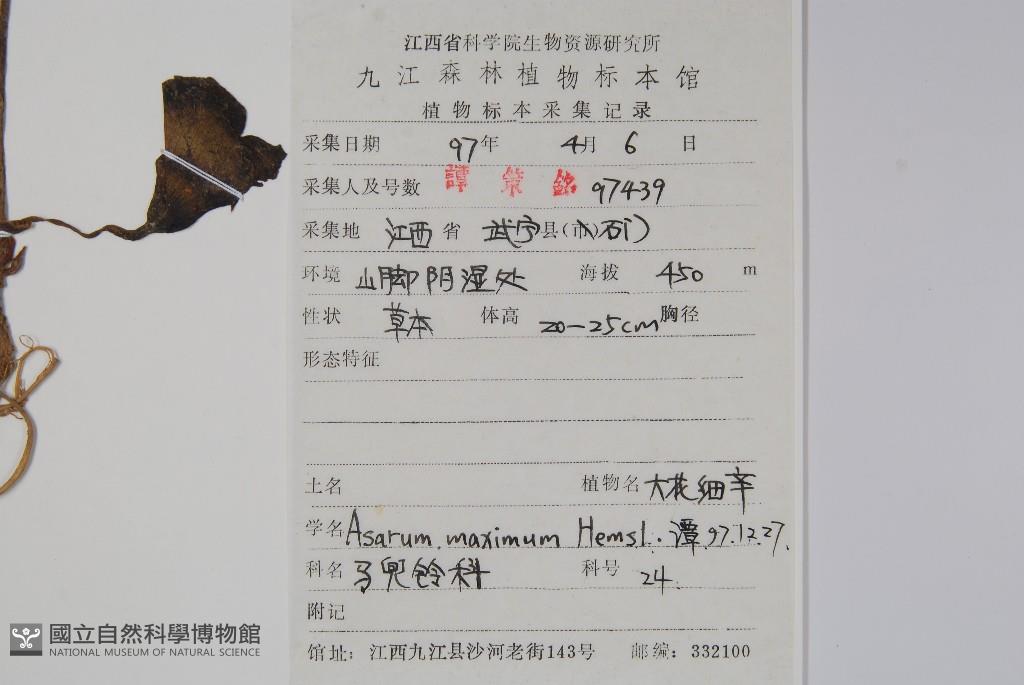 江西省科学院生物资源研究所
九江森林植物标本馆
植物标本采集记录
采集日期 97年 4月 6 日
采集人及号数 譚策銘 97439
采集地 江西 省 武宁县(市)石门
环境 山脚阴湿处 海拔 450 m
性状 草本 体高 20-25cm 胸径
形态特征
土名 植物名 大花细辛
学名 Asarum maximum Hemsl. 潭 97.12.27.
科名 马兜铃科 科号 24.
附记
馆址: 江西九江县沙河老街143号 邮编: 332100
國立自然科學博物館
NATIONAL MUSEUM OF NATURAL SCIENCE